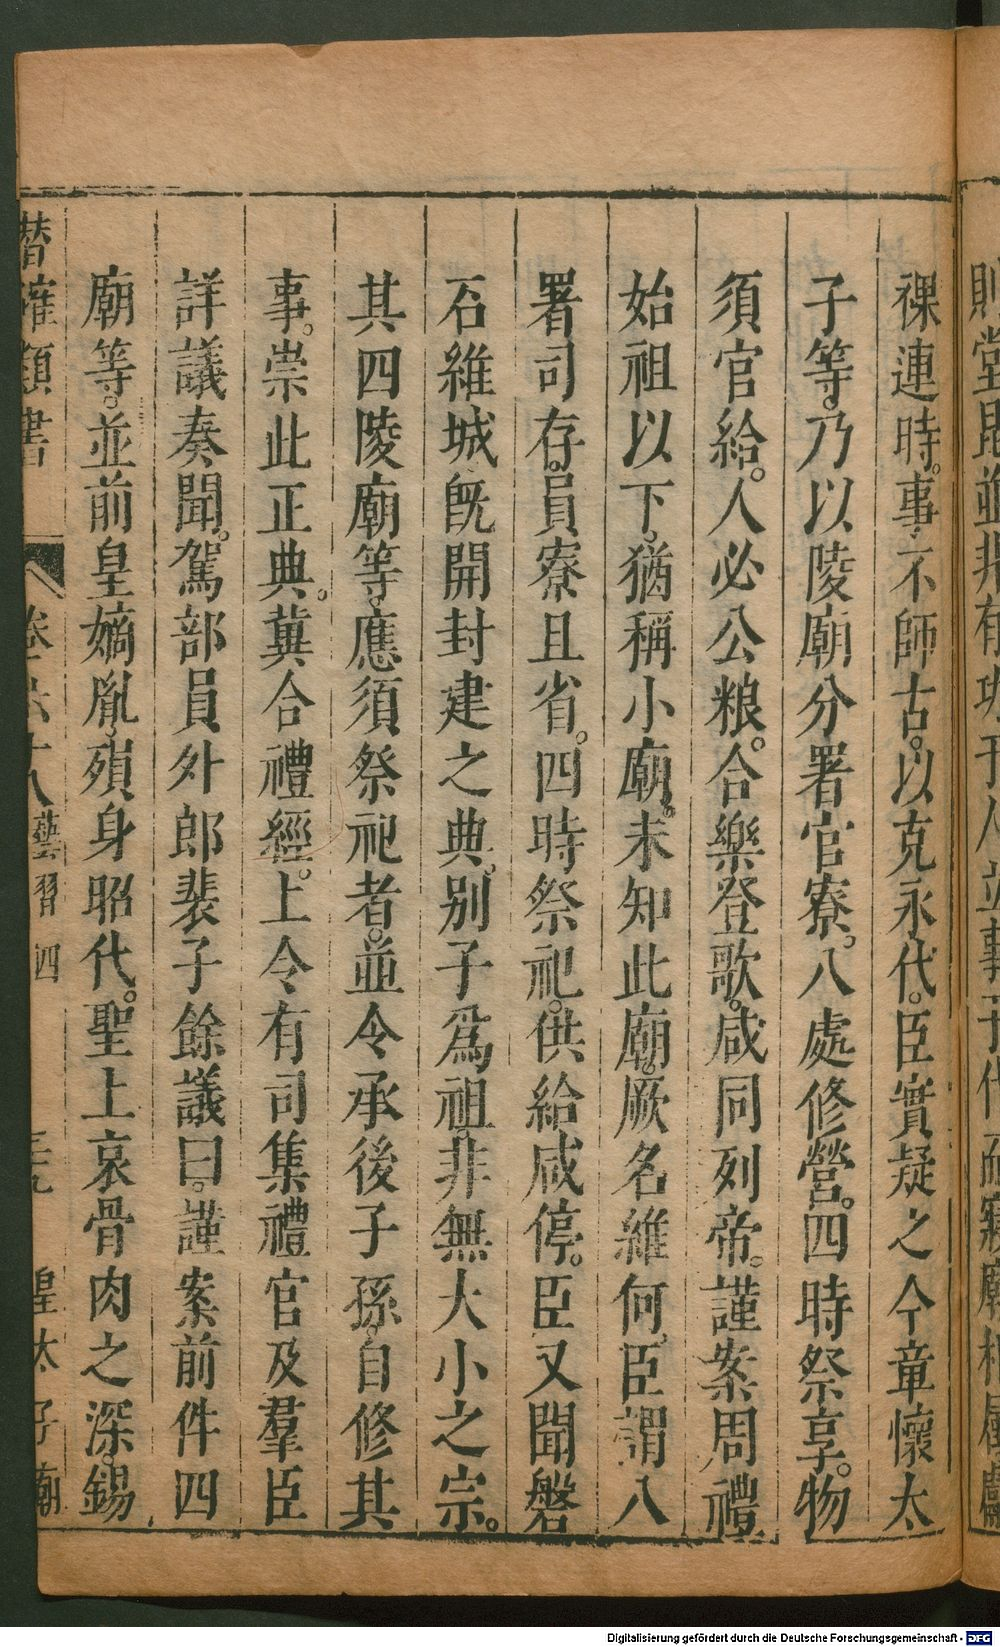 祼連時。事不師古。以克永代。臣實疑之今章懷太
子等。乃以陵廟分署官寮。八處修營。四時祭享。物
須官給。人必公粮。合樂登歌。咸同列帝。謹案周禮
始祖以下。猶稱小廟。未知此廟。厥名維何。臣謂八
署司存。員寮且省。四時祭祀。供給咸停。臣又聞磐
石維城。旣開封建之典。别子爲祖。非無大小之宗。
其四陵廟等。應須祭祀者。並令承後子孫。自修其
事。崇此正典。冀合禮經。上令有司集禮官及羣臣
詳議奏聞。駕部員外郎裴子餘議曰。謹案前件四
廟等。並前皇嫡胤。殞身昭代。聖上哀骨肉之深。錫
潛確類書 卷六十八 藝習四 三九 皇太子廟
Digitalisierung gefördert durch die Deutsche Forschungsgemeinschaft - DFG